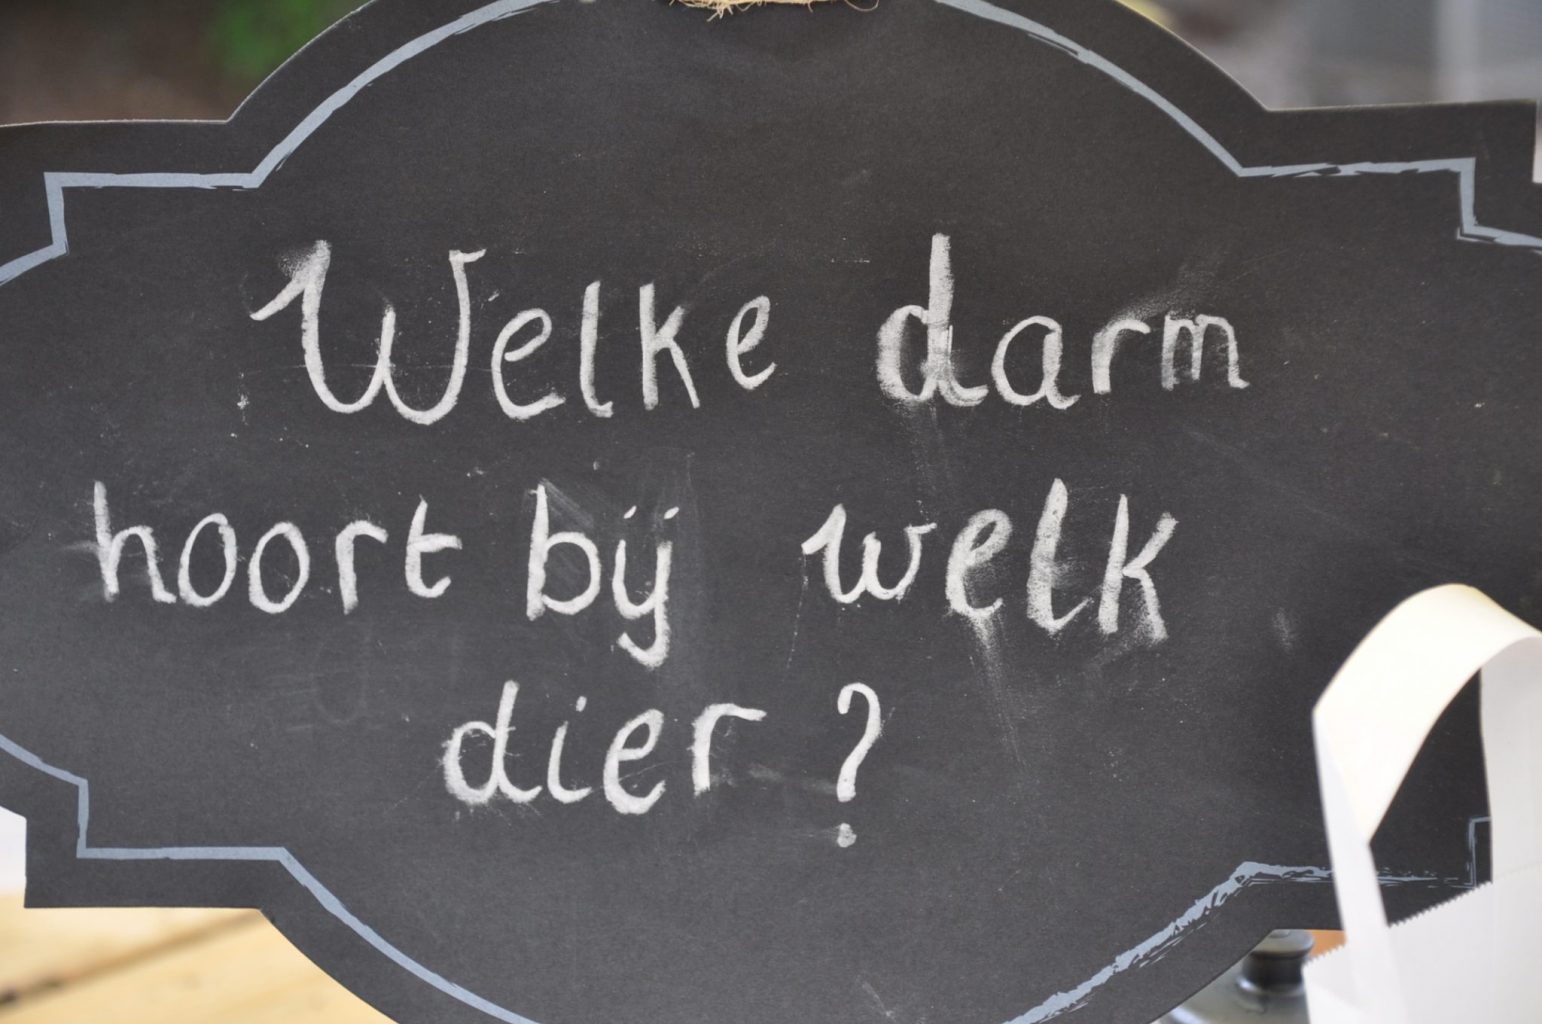 Welke darm
hoort bij welk
dier?